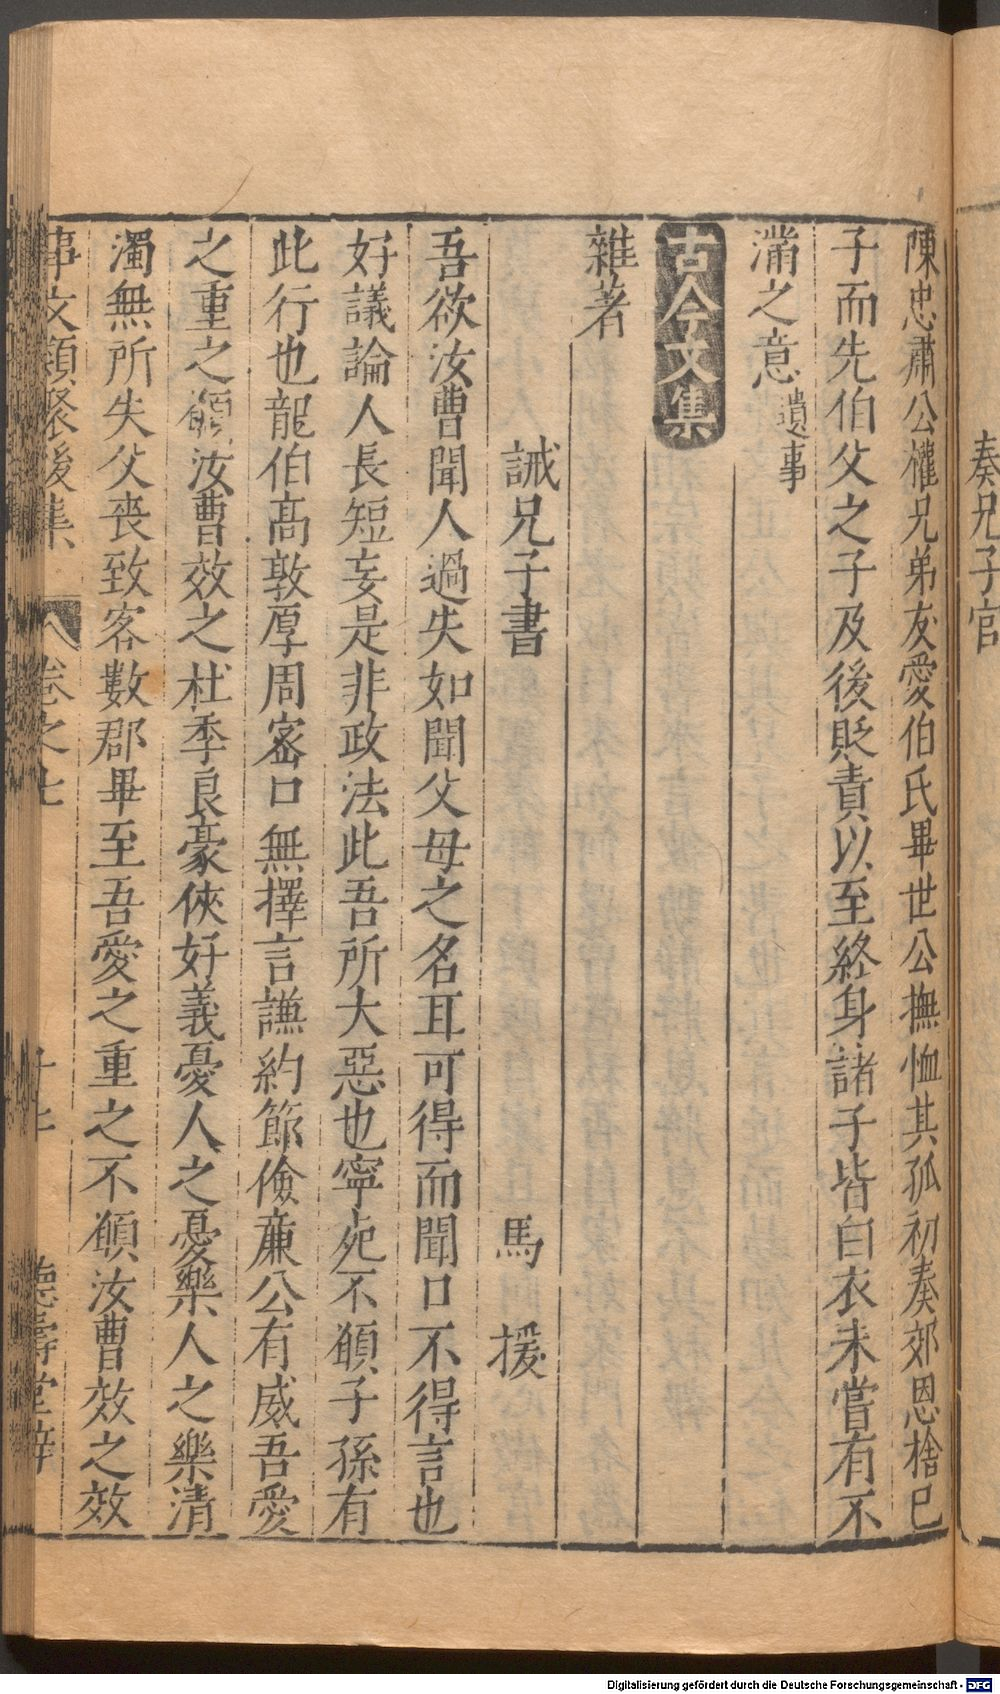 奏兄子官
陳忠肅公權兄弟友愛伯氏畢世公撫恤其孤初奏郊恩捨已
子而先伯父之子及後貶責以至終身諸子皆白衣未嘗有不
滿之意遺事
古今文集
雜著
誡兄子書 馬援
吾欲汝曹聞人過失如聞父母之名耳可得而聞口不得言也
好議論人長短妄是非政法此吾所大惡也寧死不願子孫有
此行也龍伯高敦厚周密口無擇言謙約節儉廉公有威吾愛
之重之願汝曹效之杜季良豪俠好義憂人之憂樂人之樂清
濁無所失父喪致客數郡畢至吾愛之重之不願汝曹效之效
事文類聚後集 卷之七 德壽堂梓
Digitalisierung gefördert durch die Deutsche Forschungsgemeinschaft - DFG